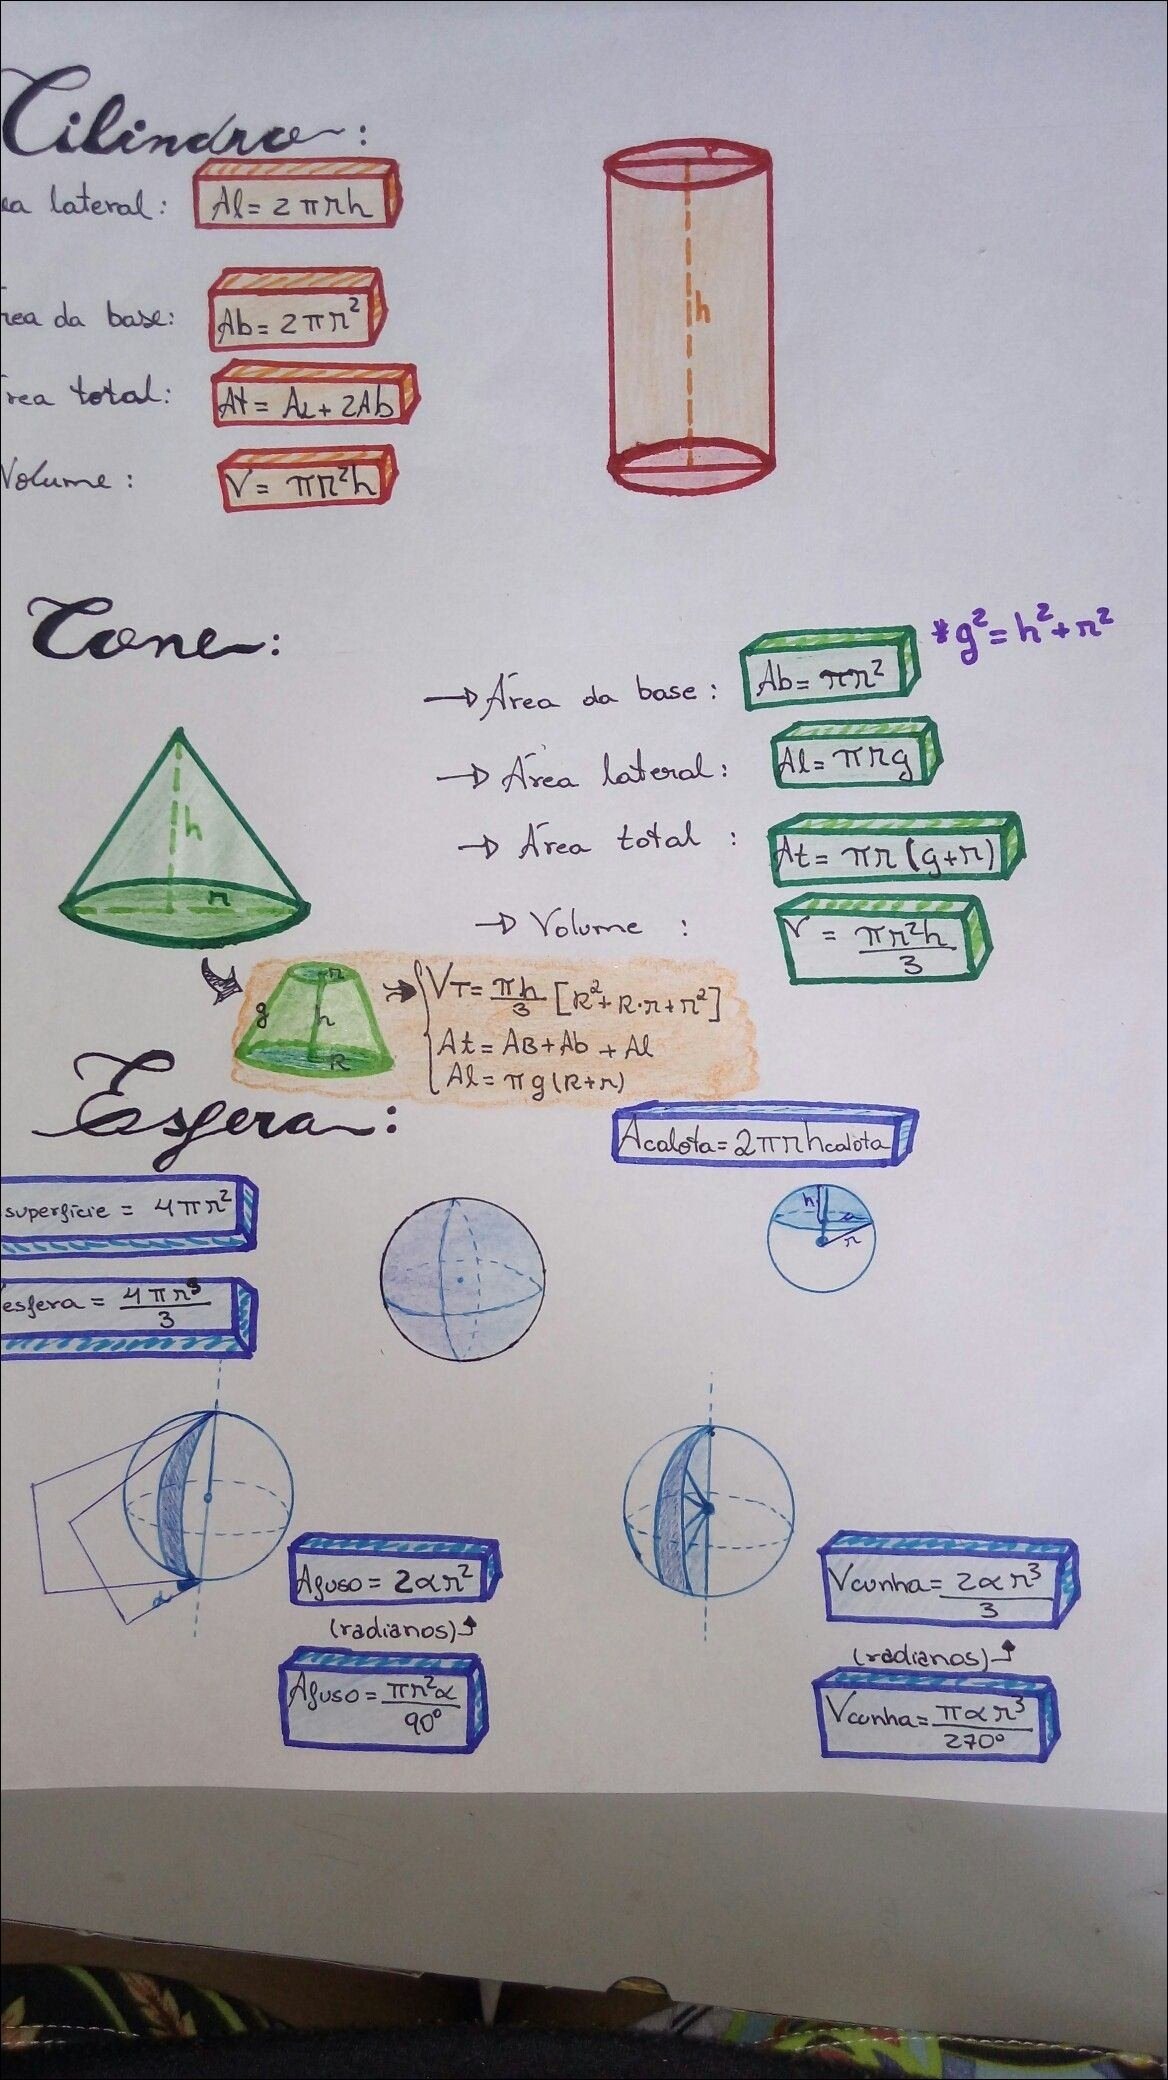 Cilindro:
ea lateral: Al = 2πrh
rea da base: Ab = 2πr²
rea total: At = AL + 2Ab
Volume: V = πr²h
r
h
Cone:
*g² = h² + r²
→ Área da base: Ab = πr²
→ Área lateral: Al = πrg
→ Área total: At = πr(g+r)
→ Volume: V = πr²h/3
h
r
r
g
h
R
VT = πh/3 [R² + R·r + r²]
At = AB + Ab + Al
Al = πg(R+r)
Esfera:
Acalota = 2πrhcalota
superfície = 4πr²
esfera = 4πr³/3
h
a
r
α
Afuso = 2αr²
(radianos)
Afuso = πr²α/90°
Vcunha = 2αr³/3
(radianos)
Vcunha = παr³/270°